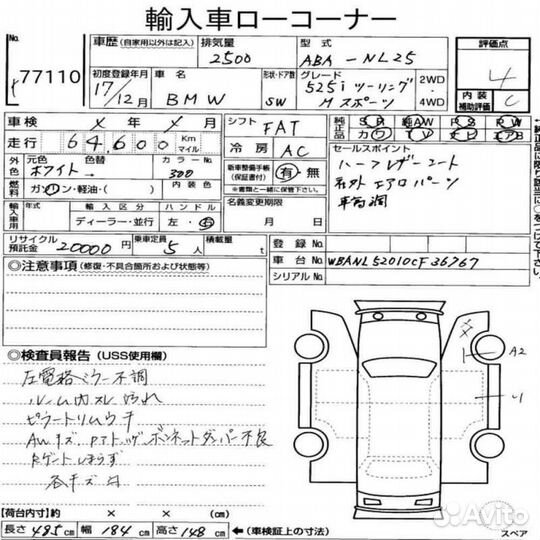 輸入車ローコーナー
No.
77110
車歴 (自家用以外は記入)
排気量
2500
型式
ABA - NL25
評価点
4
初度登録年月
17/12月
車名
BMW
形状・ドア数
SW
グレード
525i ツーリング
Mスポーツ
2WD
・
4WD
内装
補助評価
C
車検 × 年 × 月
走行 64,600 Km
マイル
シフト FAT
冷房 AC
純正品
SR 純AW PS PW
カワ TV ナビ エアB
セールスポイント
ハーフレザーシート
社外エアロパーツ
車高調
外色
元色
ホワイト
色替
→
カラーNo.
300
燃料
ガソリン・軽油・( )
内装色
新車整備手帳
(保証書付)
有・無
※書類と一緒に保管して下さい。
輸入車用
年式
輸入区分
ディーラー・並行
ハンドル
左・右
名義変更期限
月 日
リサイクル
預託金
20000円
乗車定員
5人
積載量
t
登録No.
車台No. WBANL52010CF36767
シリアルNo.
◎注意事項 (修復・不具合箇所および状態等)
◎検査員報告 (USS使用欄)
左電格ミラー不調
ルーム内スレ汚れ
ピラートリムウキ
各キズ凹
A2
U
【荷台内寸】約 × × (cm)
長さ 485 cm 幅 184 cm 高さ 148 cm ←(車検証上の寸法)
スペア
Avito